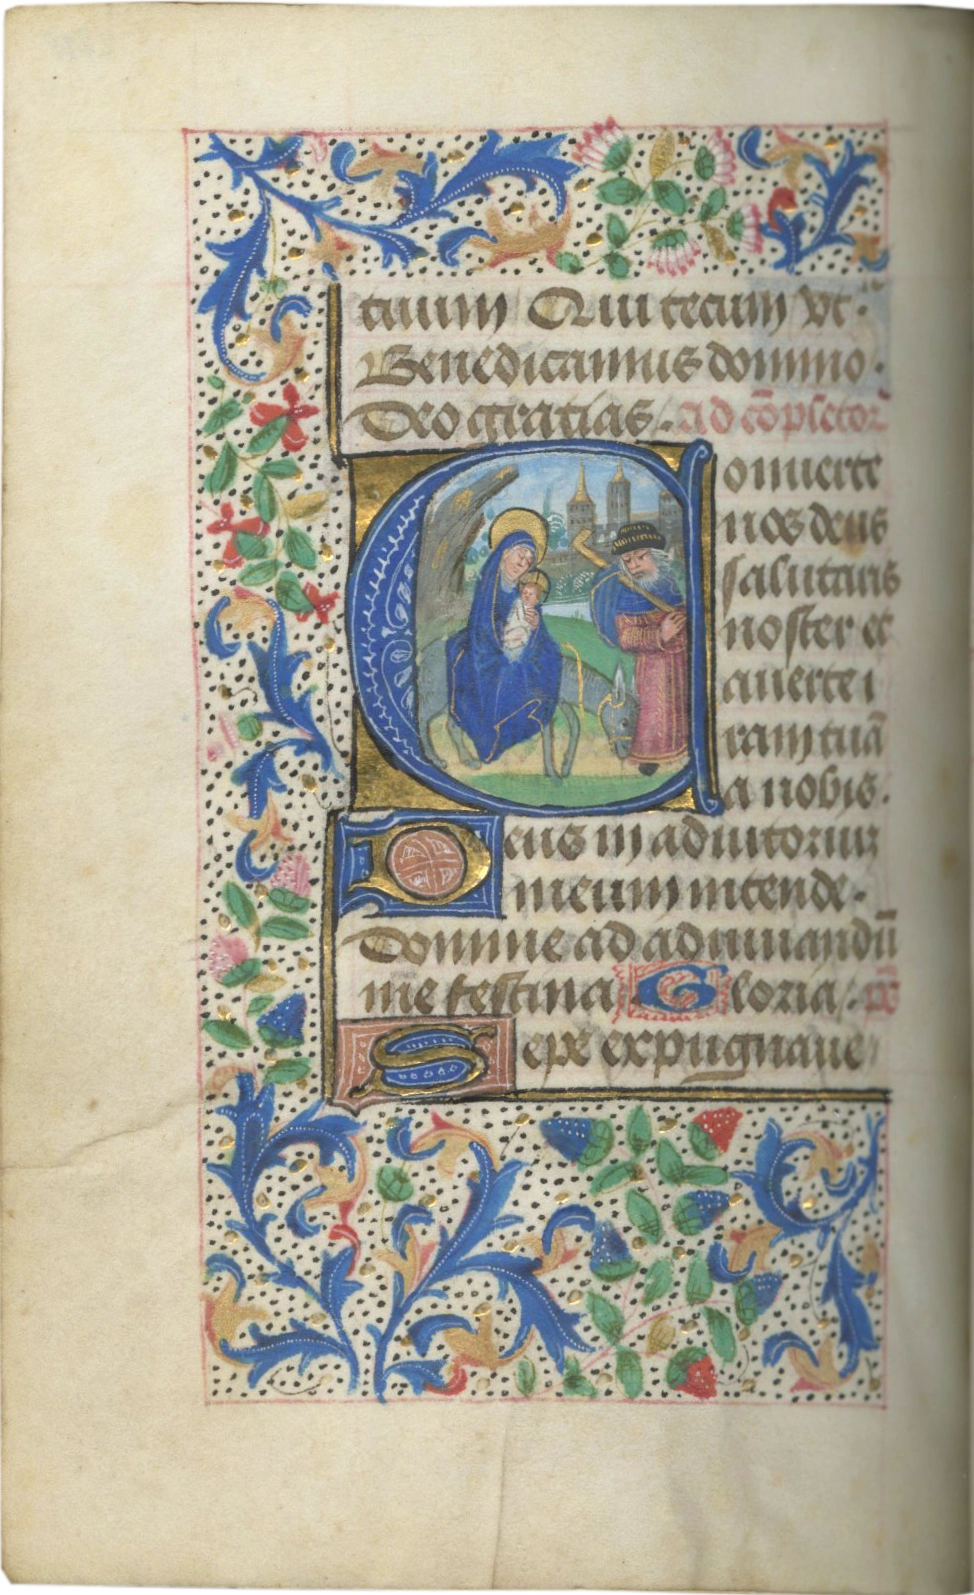 tuum Qui tecum vt.
Benedicamus domino.
Deo gratias. ad cōpletor
Conuerte
nos deus
salutaris
noster et
auerte i
ram tuā
a nobis.
Deus in adiutorium
meum intende.
Domine ad adiuuandū
me festina Gloria. pš
Sepe expugnaue